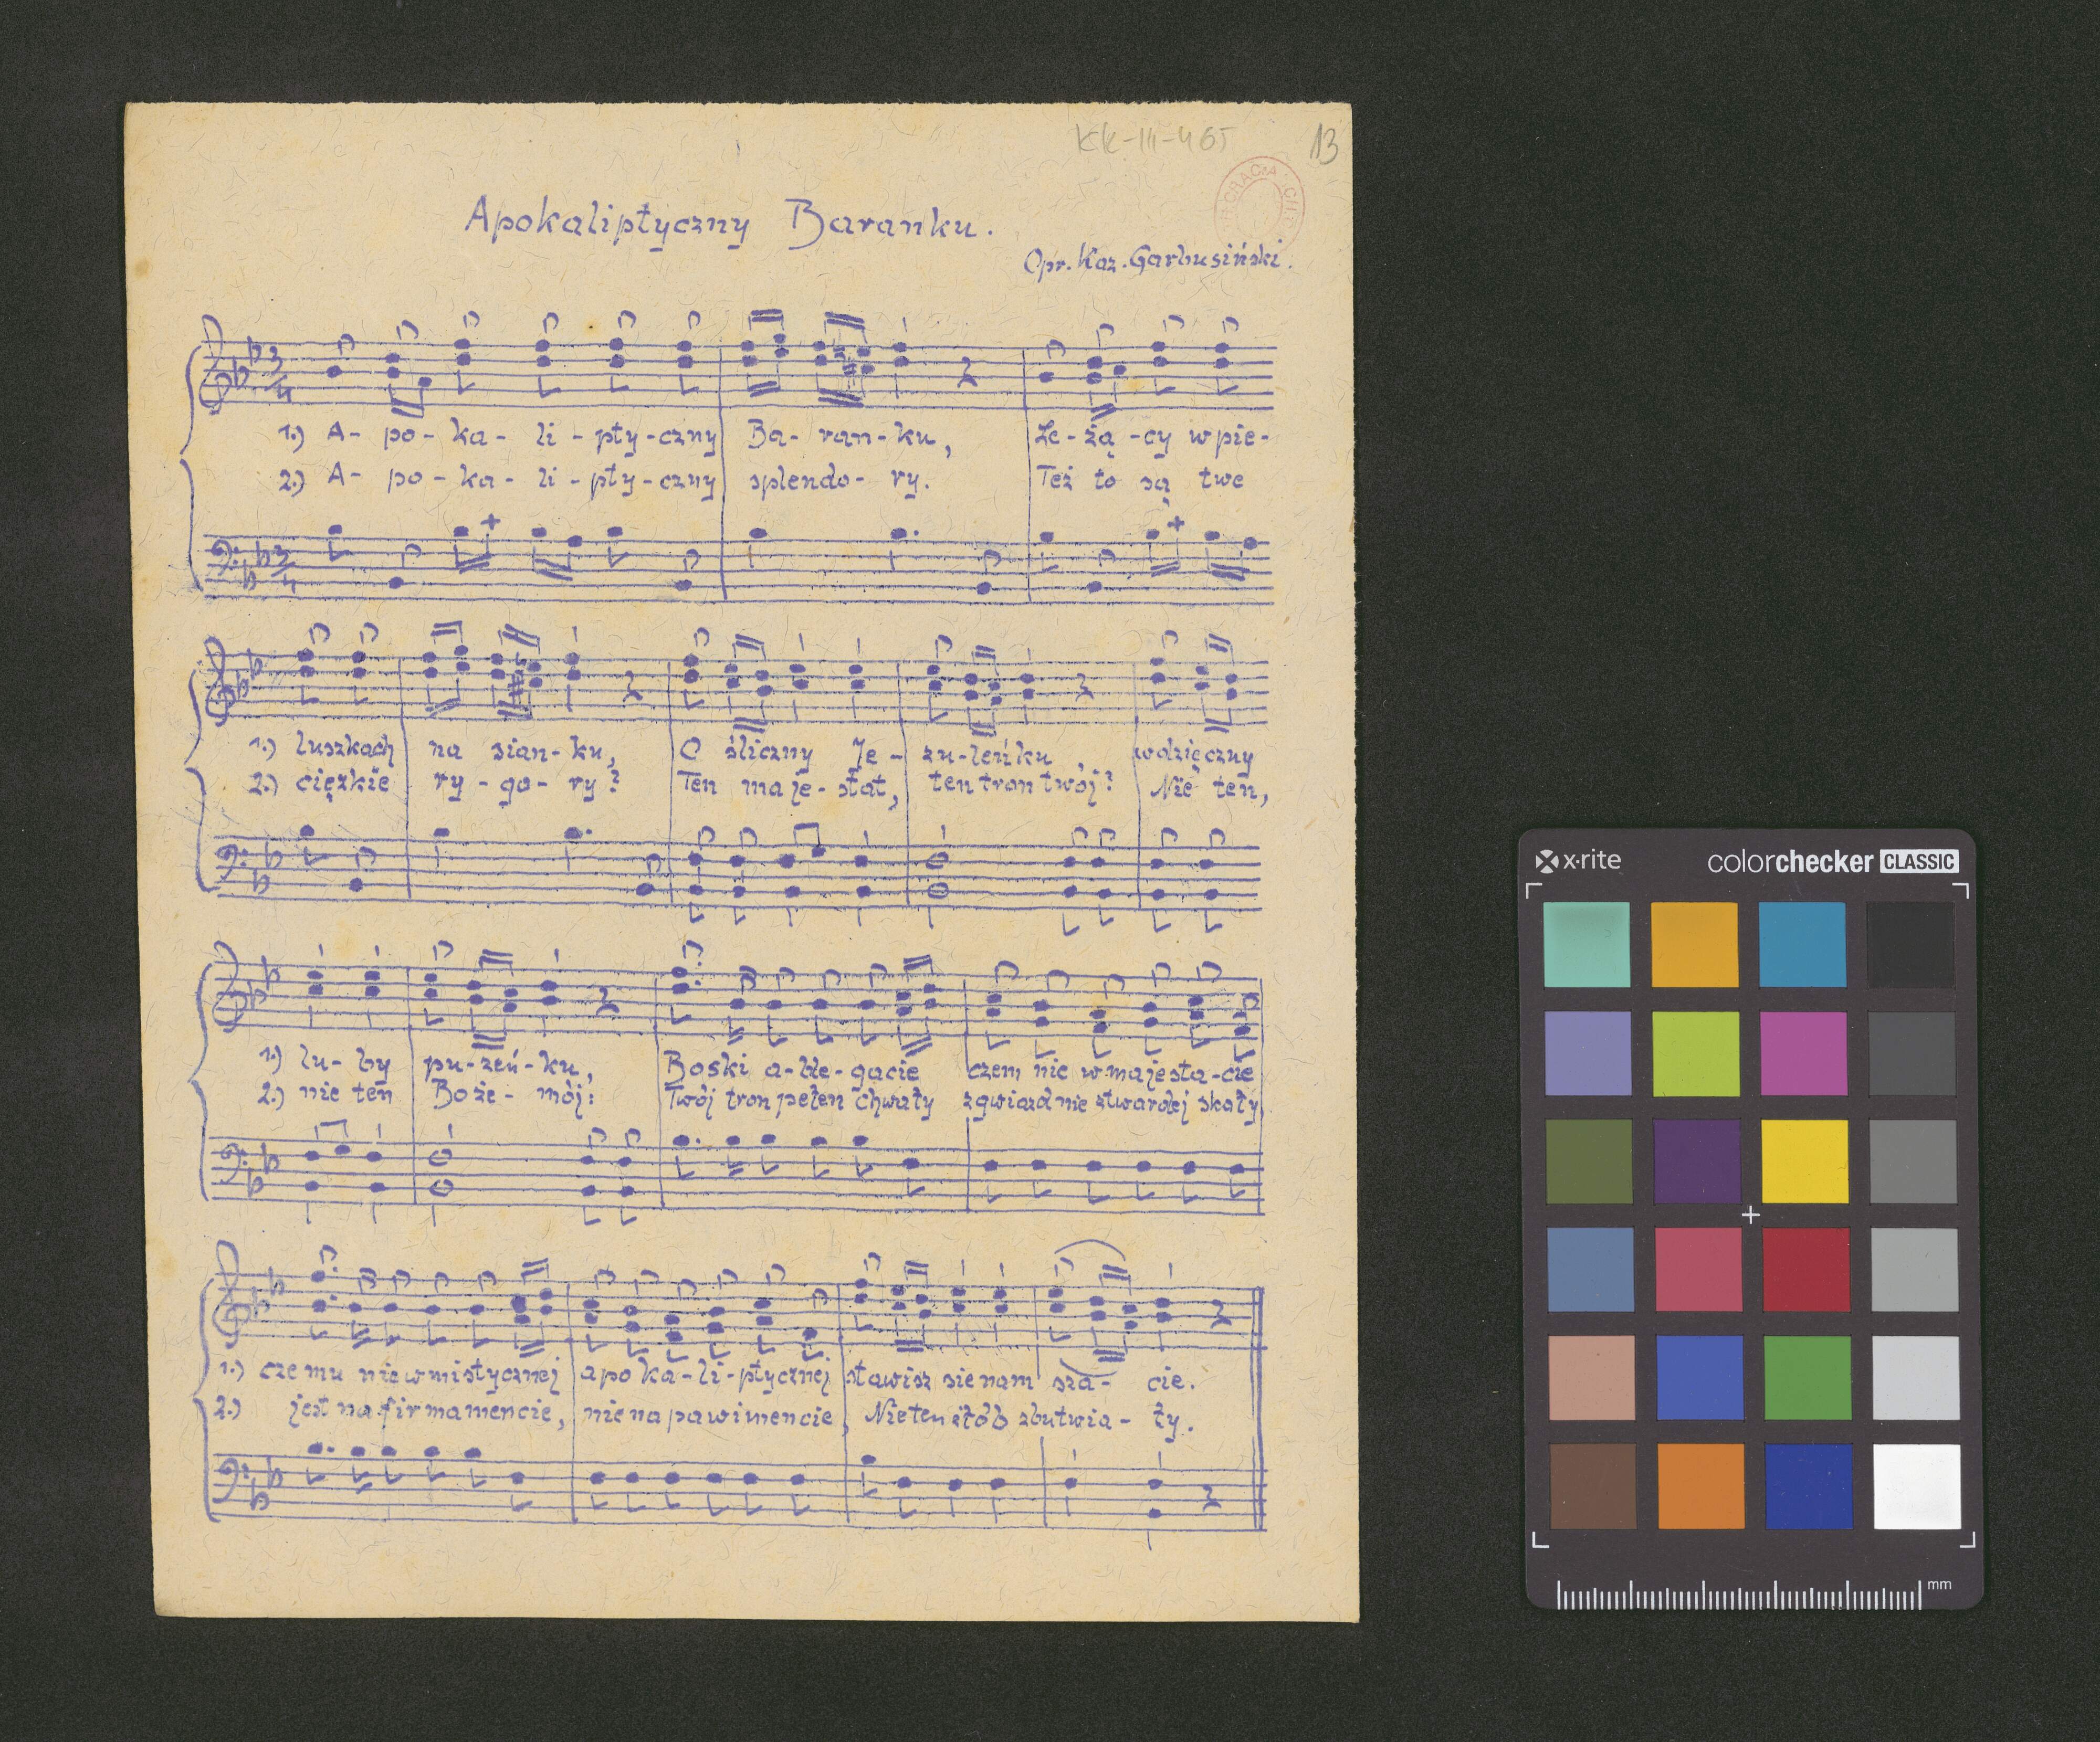 KK-III-465 13
Apokaliptyczny Baranku.
Opr. Kaz. Garbusiński.
3/4
1.) A- po- ka- li- pty-czny Ba- ran-ku, Le-żą-cy w pie-
2.) A- po- ka- li- pty-czny splendo- ry. Też to są twe
3/4
1.) luszkach na sian-ku, O śliczny Je- zu-leńku, wdzięczny
2.) ciężkie ry-go-ry? Ten maje-stat, ten tron twój? Nie ten,
1.) lu-by pu-zeń-ku, Boski a-ble-gacie czem nie w majesta-cie
2.) nie ten Boże- mój: Twój tron pełen chwały z gwiazd nie z twardej skały
1.) czemu nie w mistycznej apo ka-li-ptycznej stawisz sie nam sza- cie.
2.) jest na firmamencie, nie na pawimencie, Nie ten żłób zbutwia- ły.
x·rite colorchecker CLASSIC
mm